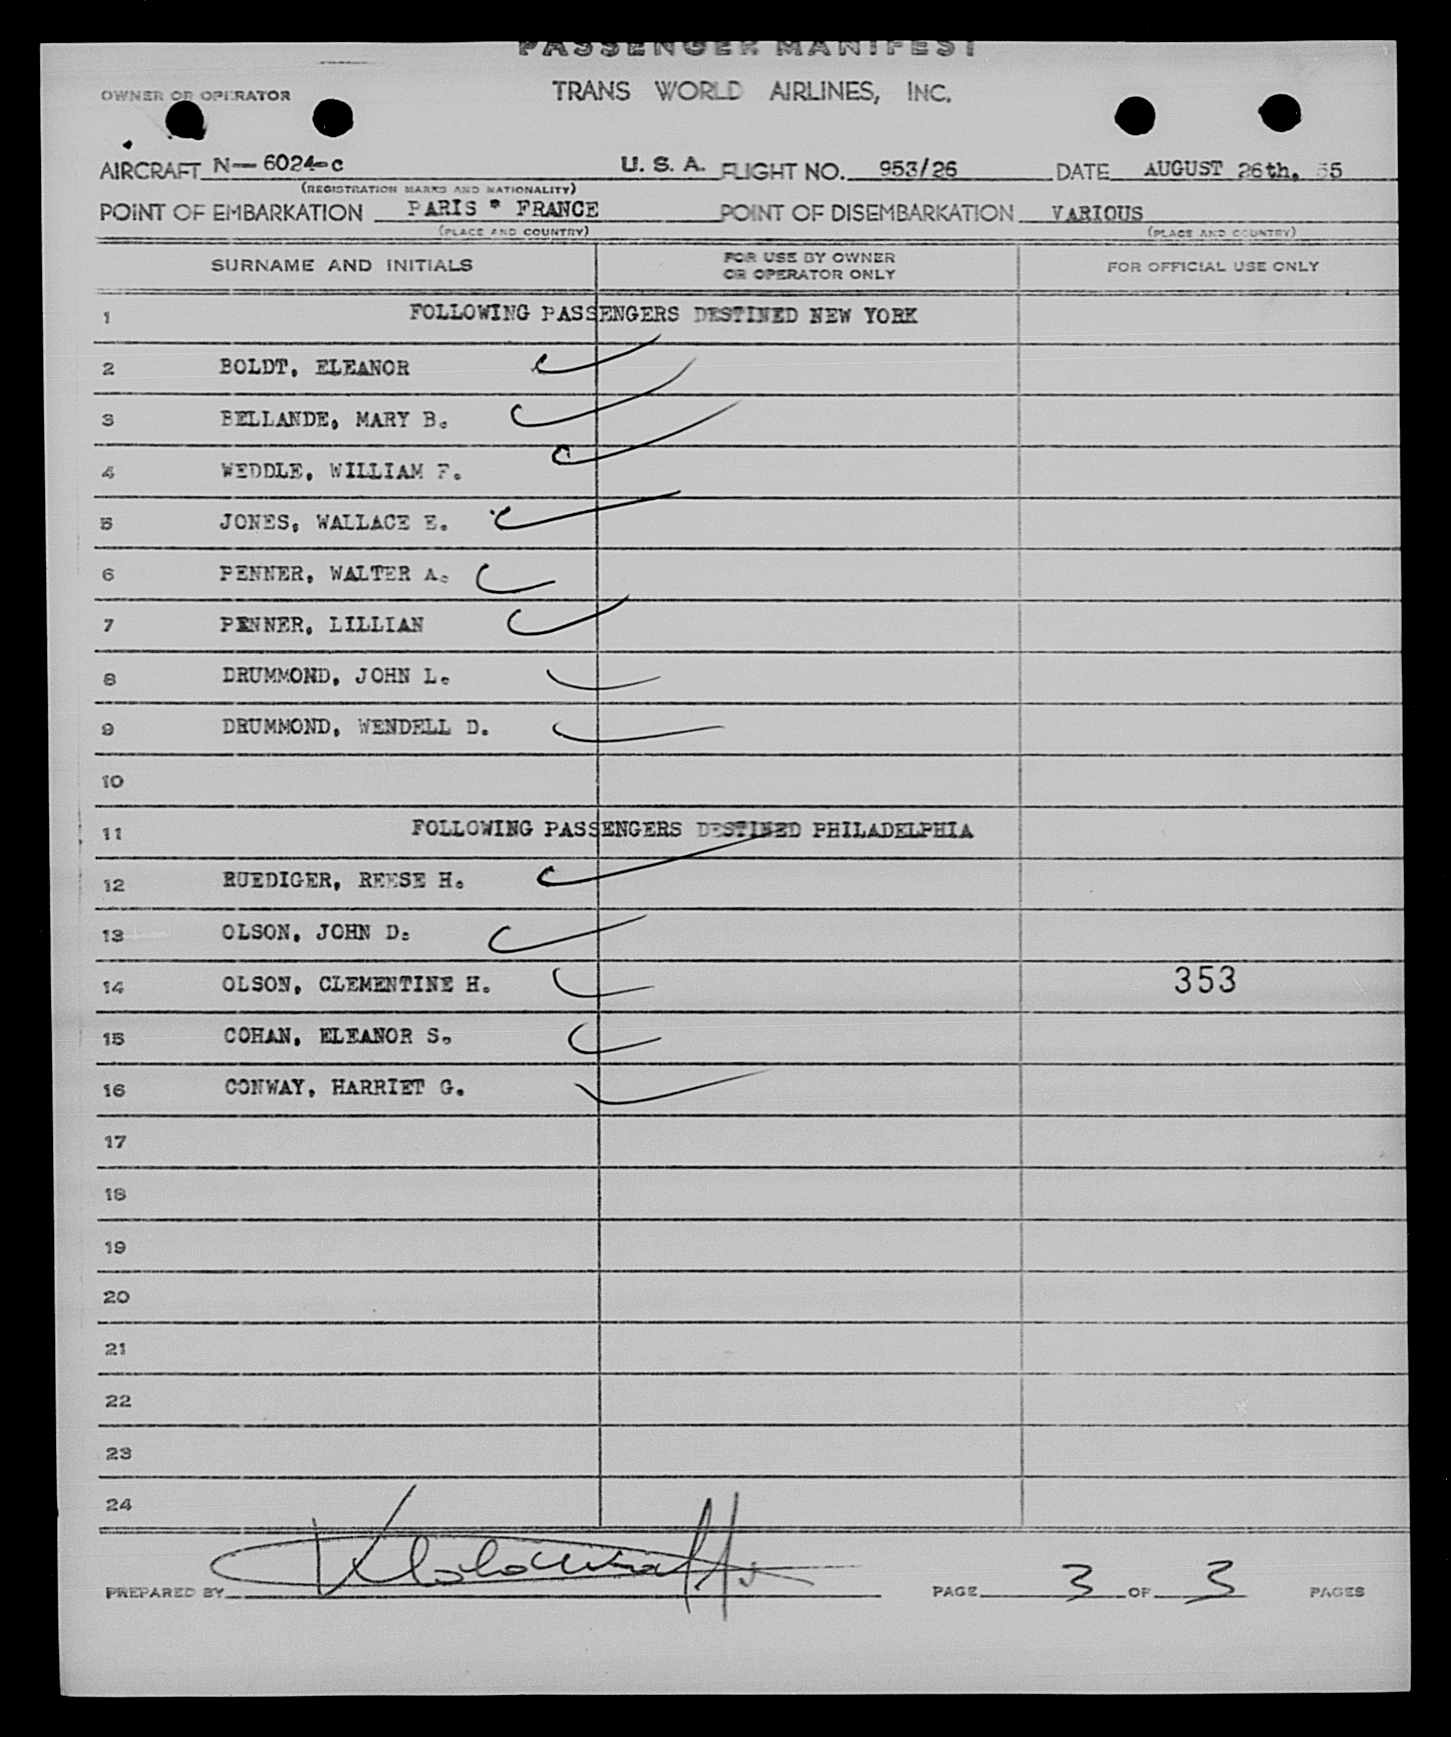 PASSENGER MANIFEST
OWNER OR OPERATOR TRANS WORLD AIRLINES, INC.
AIRCRAFT N-6024-C U. S. A. FLIGHT NO. 953/26 DATE AUGUST 26th. 55
(REGISTRATION MARKS AND NATIONALITY)
POINT OF EMBARKATION PARIS * FRANCE POINT OF DISEMBARKATION VARIOUS
(PLACE AND COUNTRY) (PLACE AND COUNTRY)
SURNAME AND INITIALS FOR USE BY OWNER OR OPERATOR ONLY FOR OFFICIAL USE ONLY
1 FOLLOWING PASSENGERS DESTINED NEW YORK
2 BOLDT, ELEANOR
3 BELLANDE, MARY B.
4 WEDDLE, WILLIAM F.
5 JONES, WALLACE E.
6 PENNER, WALTER A.
7 PENNER, LILLIAN
8 DRUMMOND, JOHN L.
9 DRUMMOND, WENDELL D.
10
11 FOLLOWING PASSENGERS DESTINED PHILADELPHIA
12 RUEDIGER, REESE H.
13 OLSON, JOHN D.
14 OLSON, CLEMENTINE H. 353
15 COHAN, ELEANOR S.
16 CONWAY, HARRIET G.
17
18
19
20
21
22
23
24
PREPARED BY PAGE 3 OF 3 PAGES